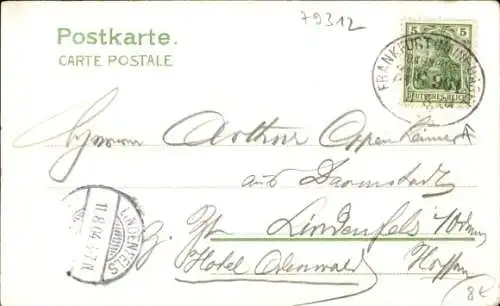 79312
Postkarte.
CARTE POSTALE
5 5
DEUTSCHES REICH
FRANKFURT
Herrn Arthur Oppenheimer
aus Darmstadt
z. Zt. Lindenfels i/Oden
Hotel Odenwald Hessen
LINDENFELS
11.8.04
8€